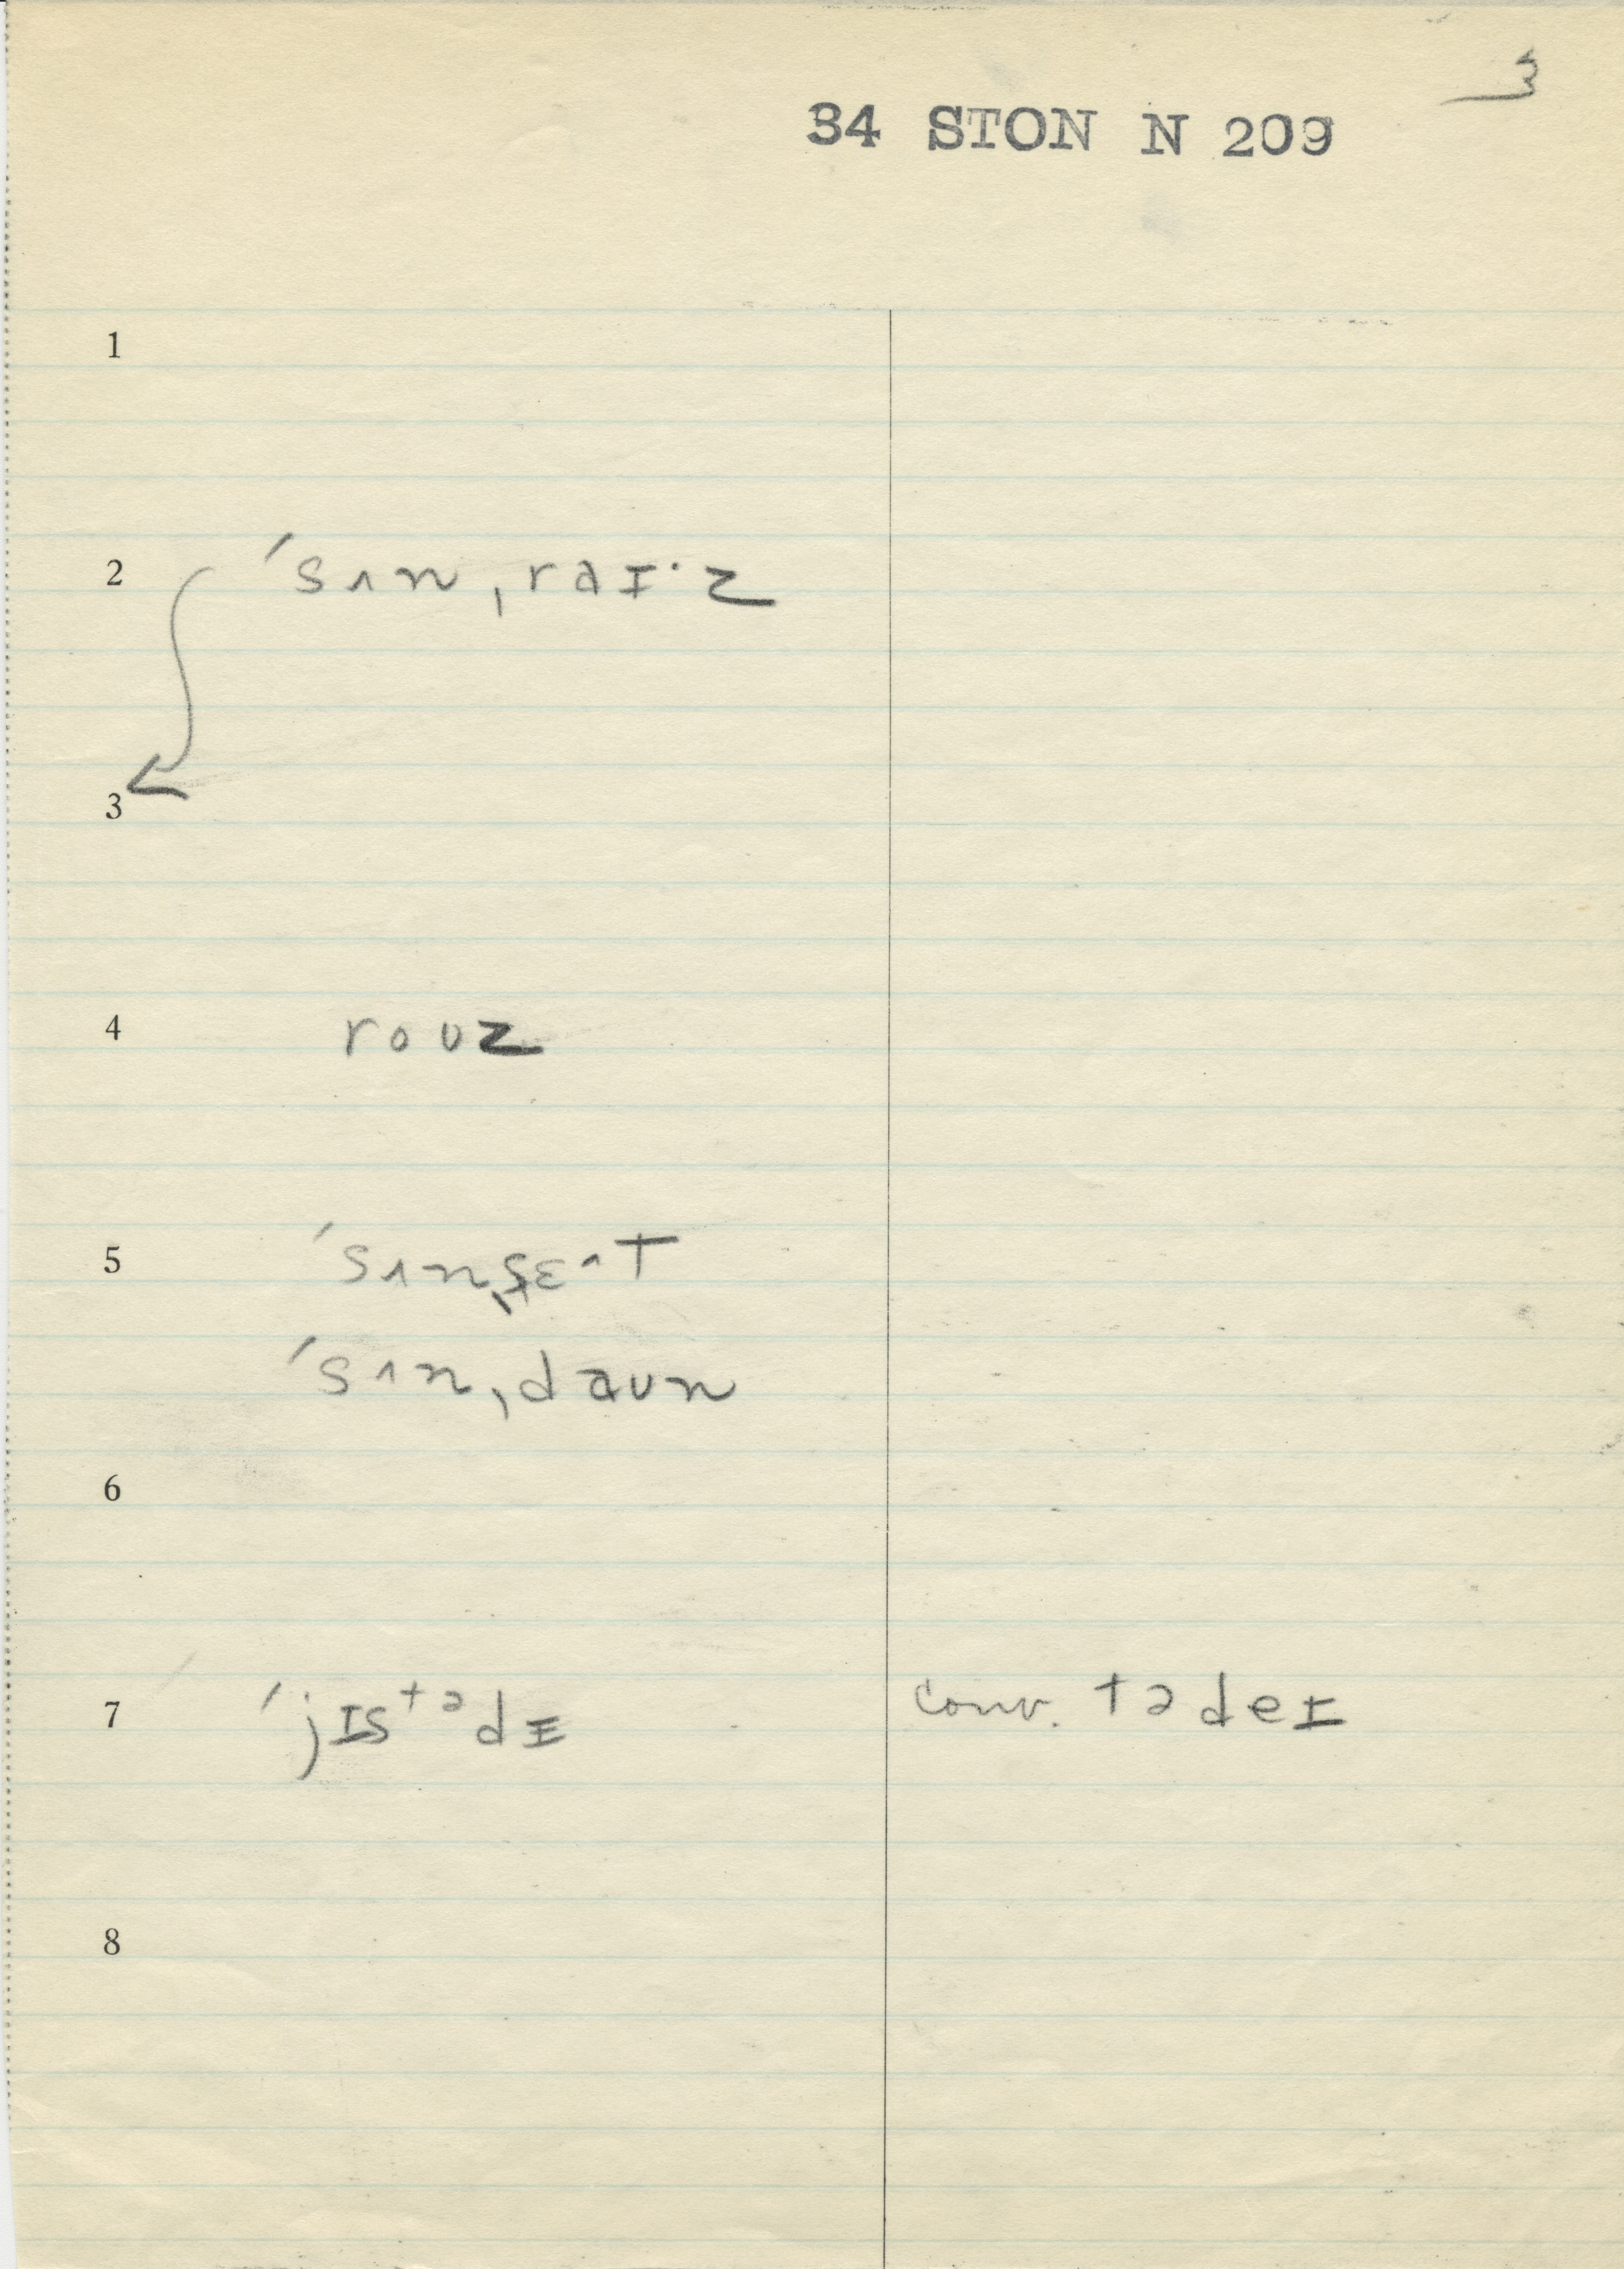 3
34 STON N 209
1
2 ˈsʌn ˌraɪ·z
3
4 roʊz
5 ˈsʌn ˌsɛ^t
ˈsʌn ˌdaʊn
6
7 ˈjɪstədɪ conv. tədeɪ
8